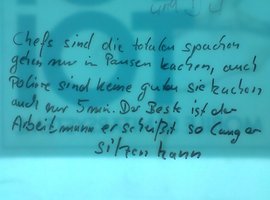 Chefs sind die totalen spacken
gehn nur in Pausen kacken, auch
Polire sind keine guten sie kacken
auch nur 5 min. Der Beste ist der
Arbeitmann er scheißt so lang er
sitzen kann